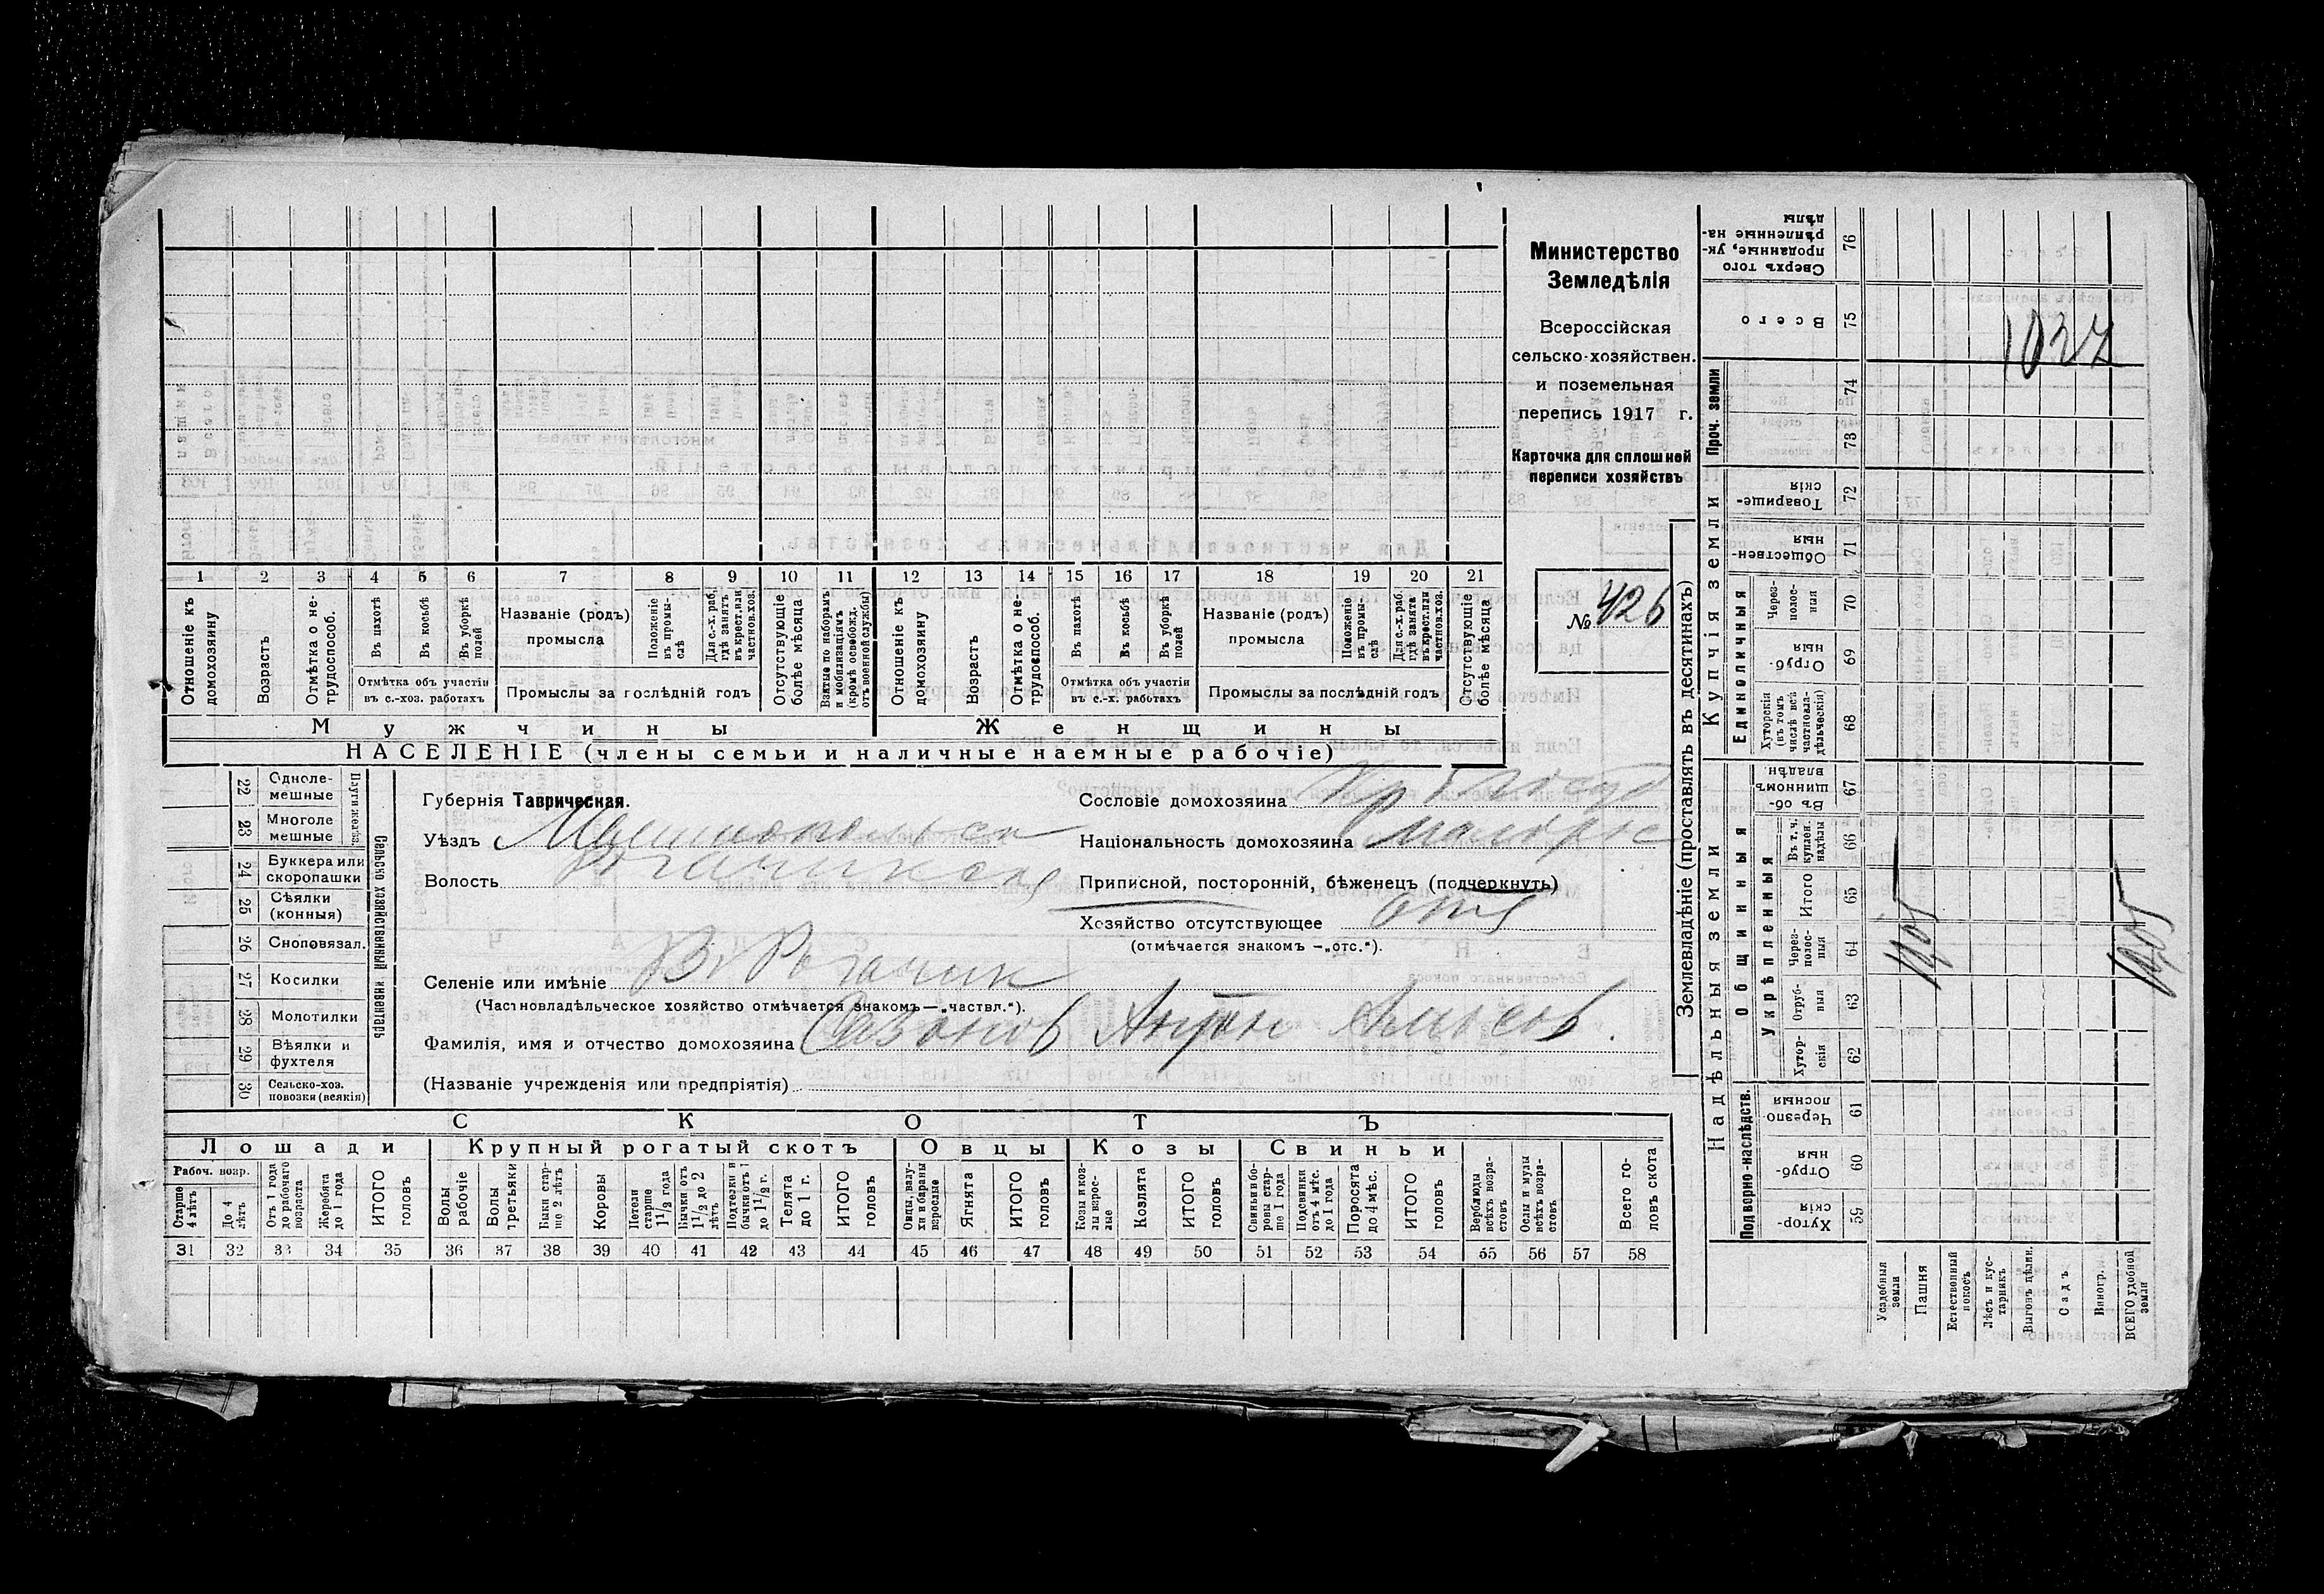 Министерство
Земледѣлія
Всероссійская
сельско-хозяйствен.
и поземельная
перепись 1917 г.
Карточка для сплошной
переписи хозяйствъ
№ 426
1 2 3 4 5 6 7 8 9 10 11 12 13 14 15 16 17 18 19 20 21
Отношеніе къ домохозяину
Возрастъ
Отмѣтка о не-трудоспособ.
Въ пахотѣ
Въ косьбѣ
Въ уборкѣ полей
Отмѣтка объ участіи въ с.-хоз. работахъ
Названіе (родъ) промысла
Положеніе въ промы-слѣ
Для с.-х. раб. гдѣ занятъ въ крест. или частнов. хоз.
Промыслы за послѣдній годъ
Отсутствующіе болѣе мѣсяца
Взятые по наборамъ и мобилизаціямъ (кромѣ освобожд. отъ военной службы)
Отношеніе къ домохозяину
Возрастъ
Отмѣтка о не-трудоспособ.
Въ пахотѣ
Въ косьбѣ
Въ уборкѣ полей
Отмѣтка объ участіи въ с.-х. работахъ
Названіе (родъ) промысла
Положеніе въ промы-слѣ
Для с.-х. раб. гдѣ занята въ крест. или частнов. хоз.
Промыслы за послѣдній годъ
Отсутствующіе болѣе мѣсяца
Мужчины Женщины
НАСЕЛЕНІЕ (члены семьи и наличные наемные рабочіе)
Сельско хозяйственный инвентарь
22 Одноле-мешные
23 Многоле мешные
24 Буккера или скоропашки
25 Сѣялки (конныя)
26 Сноповязал.
27 Косилки
28 Молотилки
29 Вѣялки и фухтеля
30 Сельско-хоз. повозки (всякія)
Губернія Таврическая.
Уѣздъ Мелитопольск
Волость
Селеніе или имѣніе В Рогачик
(Частновладѣльческое хозяйство отмѣчается знакомъ—„частвл.“).
Фамилія, имя и отчество домохозяина Сазонов Антон
(Названіе учрежденія или предпріятія)
Сословіе домохозяина
Національность домохозяина малорос
Приписной, посторонній, бѣженец (подчеркнуть)
Хозяйство отсутствующее отс
(отмѣчается знакомъ —„отс.“).
СКОТЪ
Лошади Крупный рогатый скотъ Овцы Козы Свиньи
Рабоч. возр.
Старше 4 лѣтъ
До 4 лѣтъ
Отъ 1 года до рабочаго возраста
Жеребята до 1 года
ИТОГО головъ
Волы рабочіе
Волы третьяки
Быки стар-ше 2 лѣтъ
Коровы
Нетели старше 1 1/2 года
Бычки отъ 1 1/2 до 2 лѣтъ
Подтелки и бычки отъ 1 до 1 1/2 г.
Телята до 1 г.
ИТОГО головъ
Овцы, валу-хи и бараны взрослые
Ягнята
ИТОГО головъ
Козы и коз-лы взрос-лые
Козлята
ИТОГО головъ
Свиньи и бо-ровы стар-ше 1 года
Подсвинки отъ 4 мѣс. до 1 года
Поросята до 4 мѣс.
ИТОГО головъ
Верблюды всѣхъ возра-стовъ
Ослы и мулы всѣхъ возра-стовъ
Всего го-ловъ скота
31 32 33 34 35 36 37 38 39 40 41 42 43 44 45 46 47 48 49 50 51 52 53 54 55 56 57 58
Землевладѣніе (проставлять въ десятинахъ)
Купчія земли
Надѣльныя земли
Проч. земли
Единоличныя
Общинныя
Укрѣпленныя
Подворно-наслѣдств.
Сверхъ того проданные, ук-рѣпленные на-дѣлы 76
Всего 75
74
73
Товарище-скія 72
Обществен-ныя 71
Через-полос-ныя 70
Отруб-ныя 69
Хуторскія (въ томъ числѣ всѣ частновла-дѣльческія) 68
Въ об-щинномъ владѣн. 67
Въ т. ч. куплен. надѣлы 66
Итого 65
Через-полос-ныя 64
Отруб-ныя 63
Хутор-скія 62
Черезпо-лосныя 61
Отруб-ныя 60
Хутор-скія 59
Усадебныя земли
Пашня
Естественный покосъ
Лѣсъ и кус-тарникъ
Выгонъ цѣлин.
Садъ
Виногр.
ВСЕГО удобной земли
1027